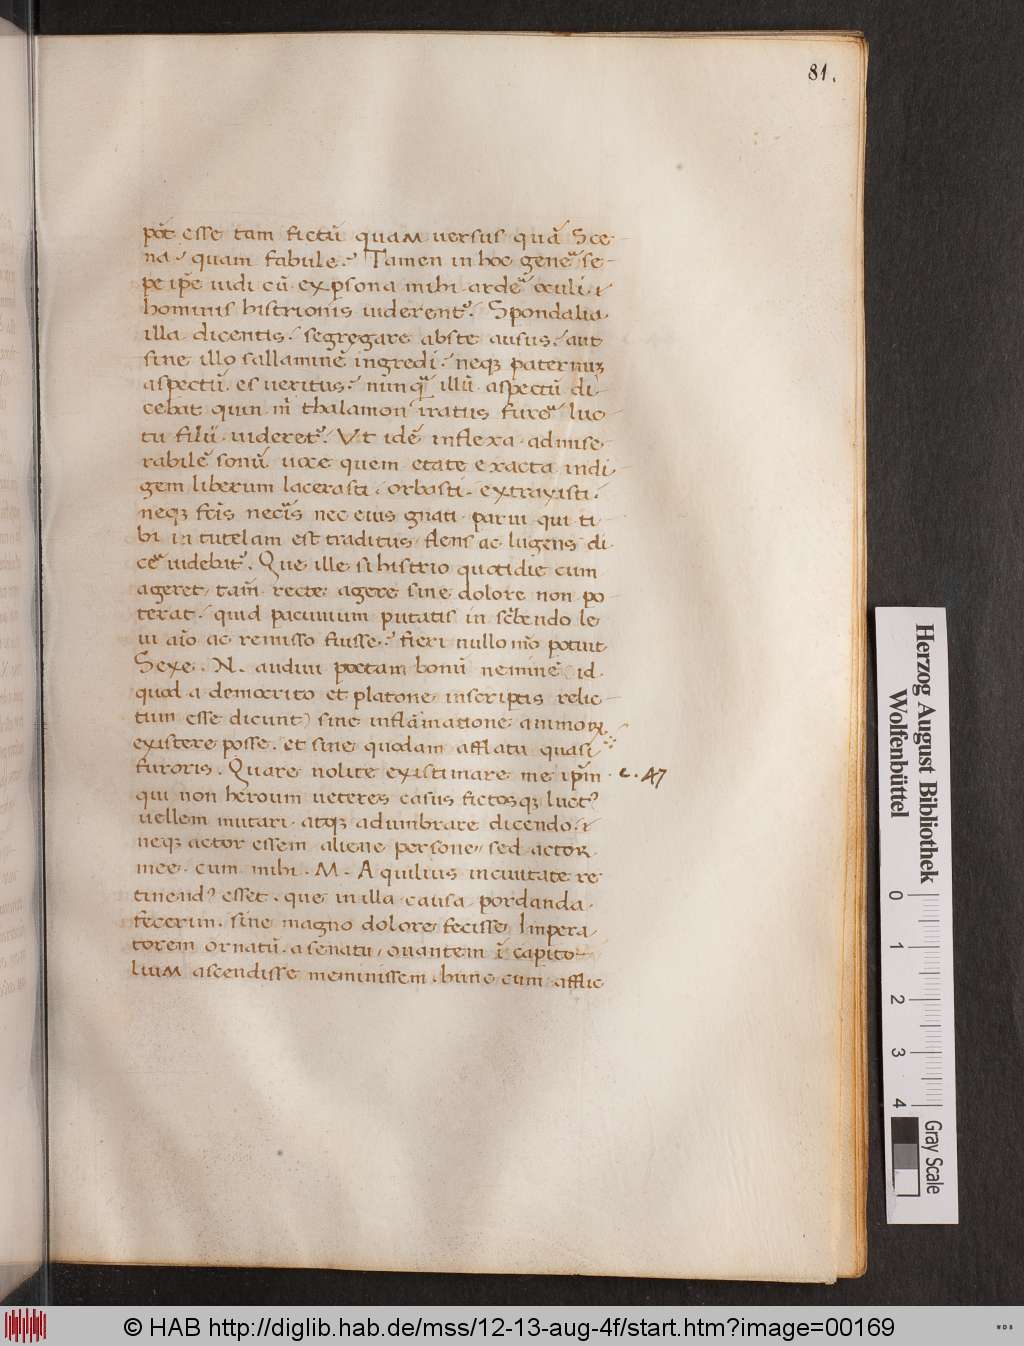 81.
põt esse tam fictũ quam versus quã Sce-
na. quam fabule.? Tamen in hoc genere᷒ se-
pe ip̃e uidi cũ ex p̱sona mihi ardere᷒ oculi.
hominis histrionis uiderent᷒. Spondalia.
illa dicentis. segregare abste ausus. aut
sine illo sallaminẽ ingredi. neqꝫ paternuꝫ
aspectũ. es ueritus. nunq̃ illũ aspectũ di
cebat quin m̃ thalamon iratus furere᷒ luc-
tu filii uideret᷒. Vt idẽ inflexa admise-
rabilẽ sonũ uoce quem etate exacta indi.
gem liberum lacerasti. orbasti. extraxisti.
neqꝫ fr̃is necis nec eius gnati parui qui ti
bi in tutelam est traditus flens ac lugens di.
cere᷒ uidebat᷒. Que ille si histrio quotidie cum
ageret tam̃ recte agere sine dolore non po
terat. quid pacuuium putatis in scb̃endo le
ui aĩo ac remisso fuisse.? fieri nullo mõ potuit
Sexe. N. audiui poetam bonũ neminẽ (id.
quod a democrito et platone inscriptis relic-
tum esse dicunt) sine inflãmatione animoꝝ
existere posse. et sine quodam afflatu quasi
furoris. Quare nolite existimare me ip̃m c. 47
qui non heroum ueteres casus fictosqꝫ luct᷒
uellem imitari atqꝫ adumbrare dicendo.
neqꝫ actor essem aliene persone sed actor
mee. cum mihi. M. Aquilius inciuitate re
tinend᷒ esset. que in illa causa pordanda.
fecerim. sine magno dolore fecisse Impera
torem ornatũ. a senatu ouantem ĩ capito-
lium ascendisse meminissem. hunc cum afflic
Herzog August Bibliothek
Wolfenbüttel
0 1 2 3 4
Gray Scale
© HAB http://diglib.hab.de/mss/12-13-aug-4f/start.htm?image=00169